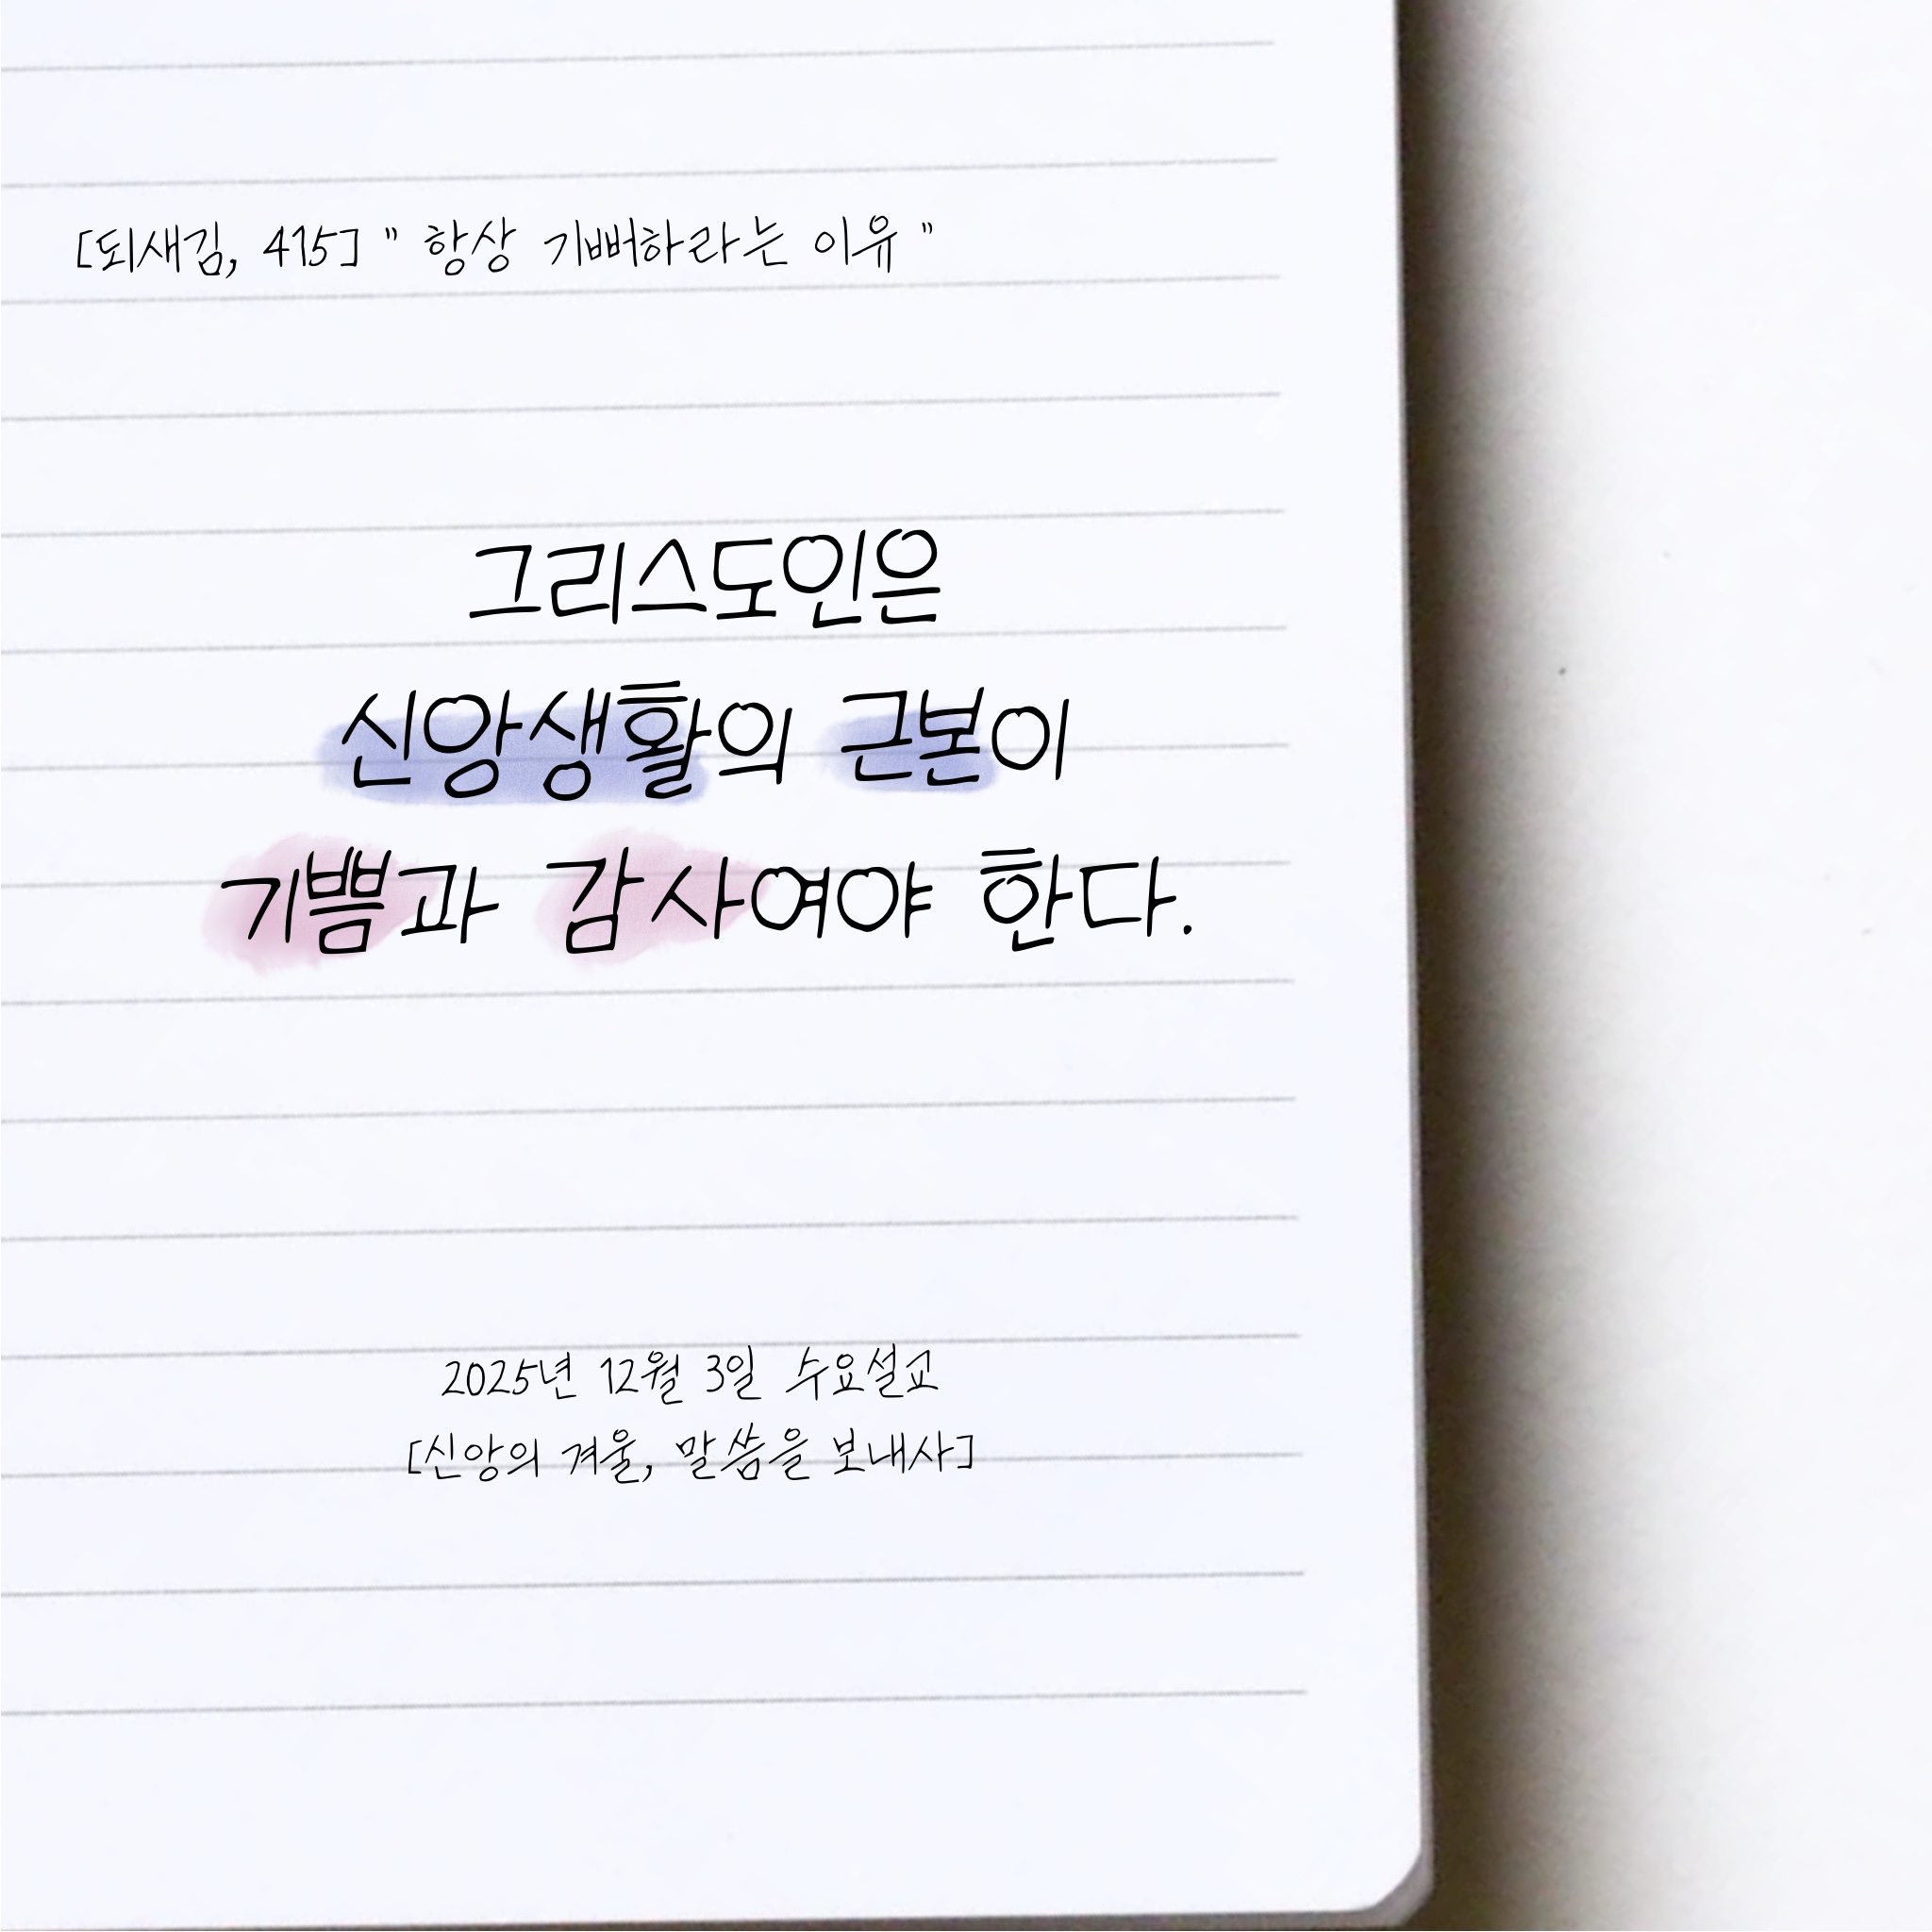 [되새김, 415] " 항상 기뻐하라는 이유 "
그리스도인은
신앙생활의 근본이
기쁨과 감사여야 한다.
2025년 12월 3일 수요설교
[신앙의 겨울, 말씀을 보내사]